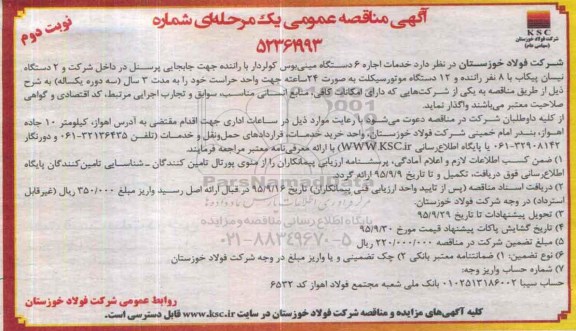 آگهی مناقصه عمومی یک مرحله‌ای شماره
۵۲۳۶۱۹۹۳
نوبت دوم
KSC
شرکت فولاد خوزستان
(سهامی عام)
شرکت فولاد خوزستان در نظر دارد خدمات اجاره ۶ دستگاه مینی‌بوس کولردار با راننده جهت جابجایی پرسنل در داخل شرکت و ۲ دستگاه
نیسان پیکاب با ۸ نفر راننده و ۱۲ دستگاه موتورسیکلت به صورت ۲۴ ساعته جهت واحد حراست خود را به مدت ۳ سال (سه دوره یکساله) به شرح
ذیل از طریق مناقصه به یکی از شرکت‌هایی که دارای امکانات کافی، منابع انسانی مناسب، سوابق و تجارب اجرایی مرتبط، کد اقتصادی و گواهی
صلاحیت معتبر می‌باشند واگذار نماید.
از کلیه داوطلبان شرکت در مناقصه دعوت می‌شود با رعایت موارد ذیل در ساعات اداری جهت اقدام مقتضی به آدرس اهواز، کیلومتر ۱۰ جاده
اهواز، بندر امام خمینی شرکت فولاد خوزستان، واحد خرید خدمات، قراردادهای حمل‌ونقل و خدمات (تلفن ۳۲۱۳۶۴۳۵-۰۶۱ و دورنگار
۳۲۹۰۸۱۴۲-۰۶۱ یا پایگاه اطلاع‌رسانی WWW.KSC.ir) با ارائه معرفی‌نامه معتبر مراجعه فرمایند.
۱) ضمن کسب اطلاعات لازم و اعلام آمادگی، پرسشنامه ارزیابی پیمانکاران را از منوی پورتال تامین کنندگان ـ شناسایی تامین‌کنندگان پایگاه
اطلاع‌رسانی فوق دریافت، تکمیل و تا تاریخ ۹۵/۹/۹ ارائه گردد.
۲) دریافت اسناد مناقصه (پس از تایید واحد ارزیابی فنی پیمانکاران) تا تاریخ ۹۵/۹/۱۶ در قبال ارائه اصل رسید واریز مبلغ ۳۵۰/۰۰۰ ریال (غیرقابل
استرداد) در وجه شرکت فولاد خوزستان.
۳) تحویل پیشنهادات تا تاریخ ۹۵/۹/۲۹
۴) تاریخ گشایش پاکات پیشنهاد قیمت مورخ ۹۵/۹/۳۰
۵) مبلغ تضمین شرکت در مناقصه ۲۲۰/۰۰۰/۰۰۰ ریال
۶) نوع تضمین: ۱) ضمانتنامه معتبر بانکی ۲) چک تضمینی و یا واریز مبلغ در وجه شرکت فولاد خوزستان
۷) شماره حساب واریز وجه:
حساب سیبا ۰۱۰۲۵۱۳۱۸۶۰۰۲ بانک ملی شعبه مجتمع فولاد اهواز کد ۶۵۳۲
روابط عمومی شرکت فولاد خوزستان
کلیه آگهی‌های مزایده و مناقصه شرکت فولاد خوزستان در سایت www.ksc.ir قابل دسترسی است.
ParsNamadData
پایگاه اطلاع رسانی مناقصه و مزایده
۰۲۱-۸۸۳۴۹۶۷۰-۵